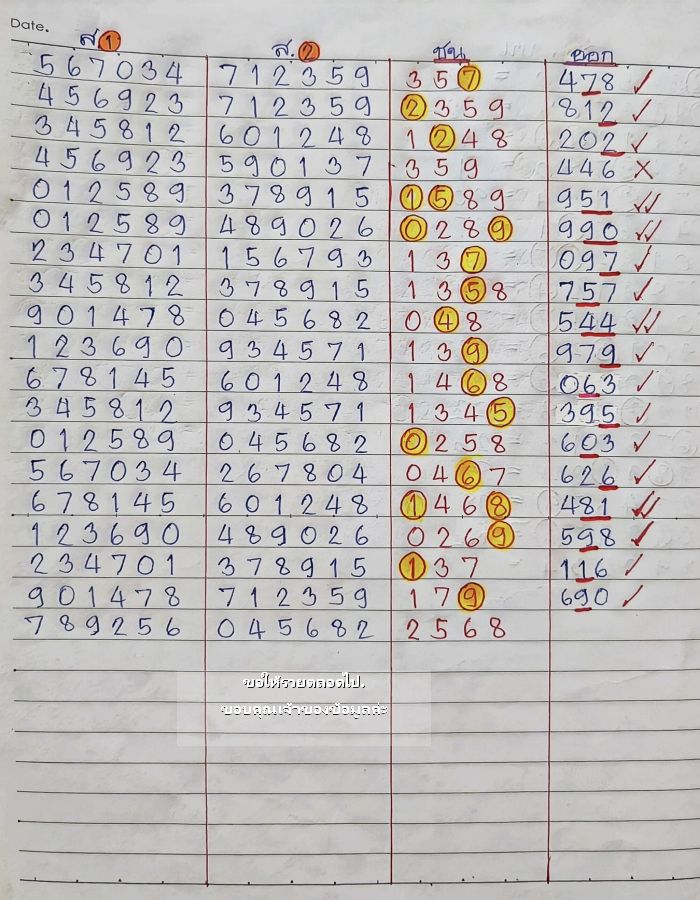 Date.
ส.1 ส.2 ชน ออก
567034 712359 357 478 ✓
456923 712359 2359 812 ✓
345812 601248 1248 202 ✓
456923 590137 359 446 X
012589 378915 1589 951 ✓✓
012589 489026 0289 990 ✓✓
234701 156793 137 097 ✓
345812 378915 1358 757 ✓
901478 045682 048 544 ✓✓
123690 934571 139 979 ✓
678145 601248 1468 063 ✓
345812 934571 1345 395 ✓
012589 045682 0258 603 ✓
567034 267804 0467 626 ✓
678145 601248 1468 481 ✓✓
123690 489026 0269 598 ✓
234701 378915 137 116 ✓
901478 712359 179 690 ✓
789256 045682 2568
ขอให้รวยตลอดไป.
ขอบคุณเจ้าของข้อมูลค่ะ